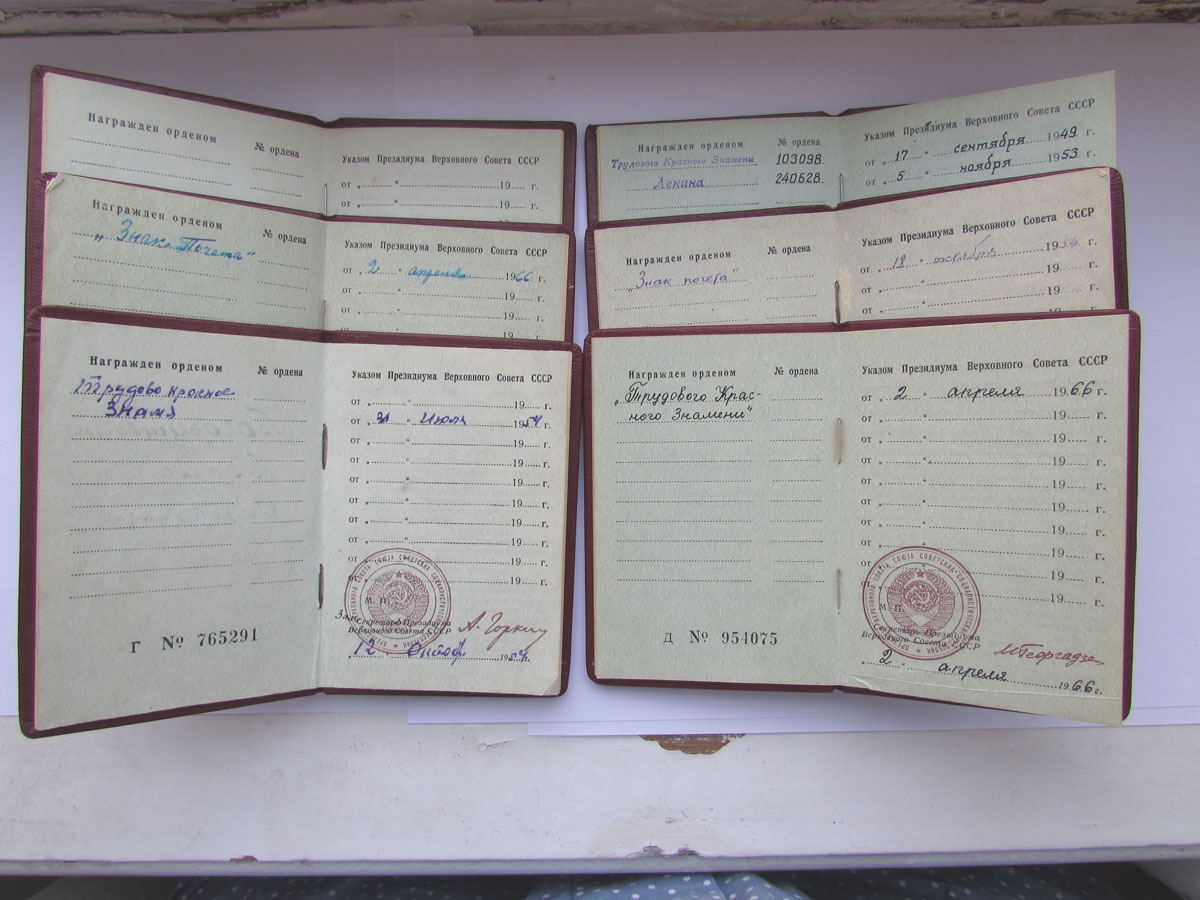 Награжден орденом
№ ордена
Указом Президиума Верховного Совета СССР
от „ “ 19 г.
от „ “ 19 г.
Награжден орденом
№ ордена
„Знак Почета“
Указом Президиума Верховного Совета СССР
от „ 2 “ апреля 1966 г.
от „ “ 19 г.
от „ “ 19 г.
Награжден орденом
№ ордена
Трудово красное
Знамя
Г № 765291
Указом Президиума Верховного Совета СССР
от „ “ 19 г.
от „ 31 “ Июля 1954 г.
от „ “ 19 г.
от „ “ 19 г.
от „ “ 19 г.
от „ “ 19 г.
от „ “ 19 г.
от „ “ 19 г.
от „ “ 19 г.
М. П.
Зам. Секретарь Президиума
Верховного Совета СССР
А. Горкин
„ 12 “ Октяб 1954 г.
Награжден орденом
№ ордена
Трудового Красного Знамени 103098.
Ленина 240628.
Указом Президиума Верховного Совета СССР
от „ 17 “ сентября 1949 г.
от „ 5 “ ноября 1953 г.
Награжден орденом
№ ордена
„Знак почета“
Указом Президиума Верховного Совета СССР
от „ 18 “ 19 г.
от „ “ 19 г.
от „ “ 19 г.
Награжден орденом
№ ордена
„Трудового Крас-
ного Знамени“
Д № 954075
Указом Президиума Верховного Совета СССР
от „ 2 “ апреля 1966 г.
от „ “ 19 г.
от „ “ 19 г.
от „ “ 19 г.
от „ “ 19 г.
от „ “ 19 г.
от „ “ 19 г.
от „ “ 19 г.
от „ “ 19 г.
от „ “ 19 г.
от „ “ 19 г.
М. П.
Секретарь Президиума
Верховного Совета СССР
М Георгадзе
„ 2 “ апреля 1966 г.